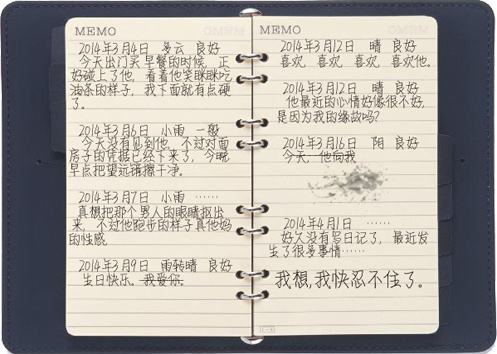 MEMO
2014年3月4日 多云 良好
今天出门买早餐的时候，正
好碰上了他，看着他笑眯眯吃
油条的样子，我下面就有点硬
了。
2014年3月6日 小雨 一般
今天没有见到他，不过对面
房子的凭据已经下来了，今晚
早点把望远镜擦干净。
2014年3月7日 小雨 ……
真想把那个男人的眼睛抠出
来，不过他跑步的样子真他妈
的性感。
2014年3月9日 雨转晴 良好
生日快乐。我爱你。
MEMO
2014年3月12日 晴 良好
喜欢，喜欢，喜欢，喜欢他。
2014年3月12日 晴 良好
他最近的心情好像很不好，
是因为我的缘故吗？
2014年3月16日 阳 良好
今天，他向我
2014年4月1日 ……
好久没有写日记了，最近发
生了很多事情……
我想，我快忍不住了。